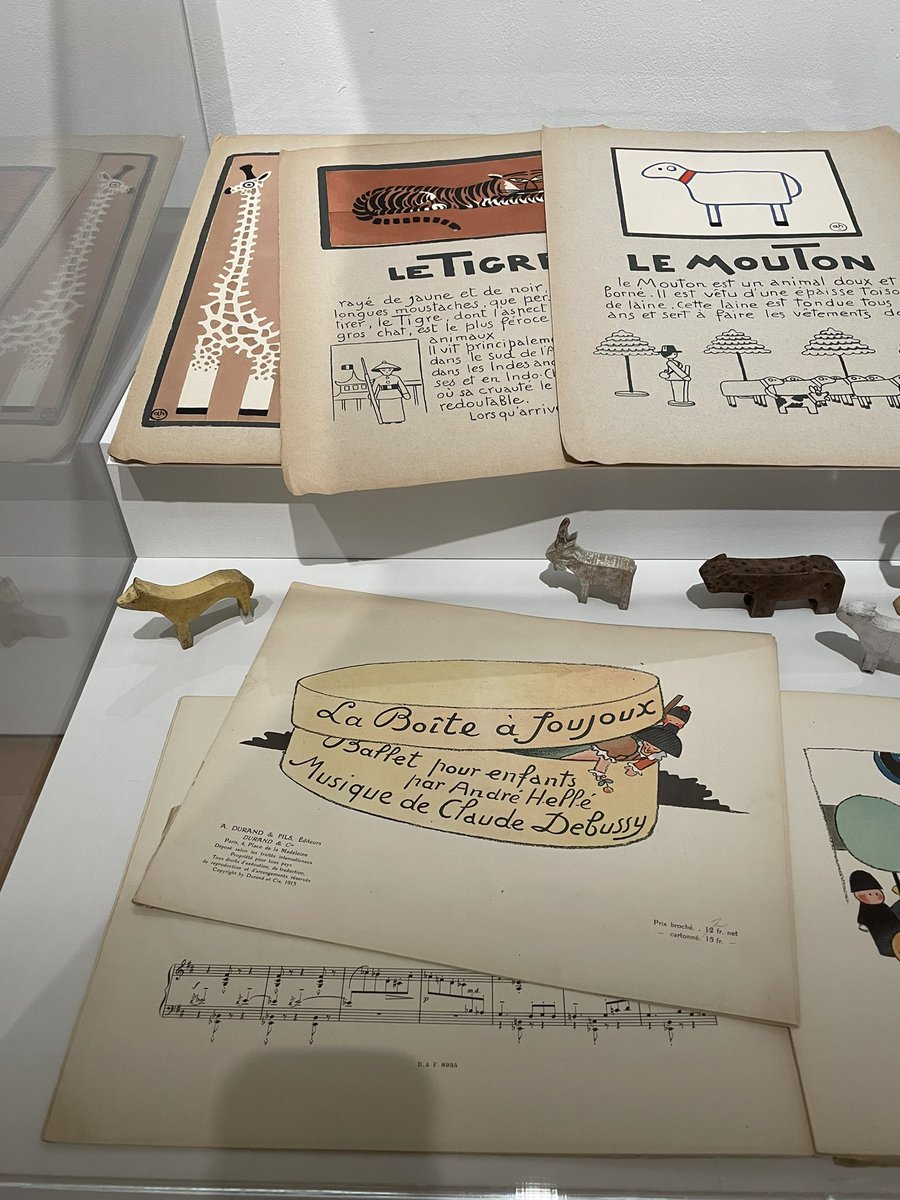 ah
LE TIGR
rayé de jaune et de noir,
longues moustaches, que per
tirer, le Tigre, dont l'aspect
gros chat, est le plus féroce
animaux
Il vit principaleme
dans le sud de l'A
dans les Indes an
ses et en Indo-C
où sa cruauté le
redoutable.
Lors qu'arriv
ah
LE MOUTON
le Mouton est un animal doux et
Borné. Il est vêtu d'une épaisse Toiso
de laine. Cette laine est Tondue Tous
ans et sert à faire les vêtements de
La Boîte à Joujoux
Ballet pour enfants
par André Hellé
Musique de Claude Debussy
A. DURAND & FILS, Éditeurs
DURAND & Cie
Paris, 4, Place de la Madeleine
Déposé selon les traités internationaux
Propriété pour tous pays
Tous droits d'exécution, de traduction,
de reproduction et d'arrangements réservés
Copyright by Durand et Cie, 1913
Prix broché. . 12 fr. net
— cartonné. 15 fr. —
f
p
m.d.
D. & F. 8935